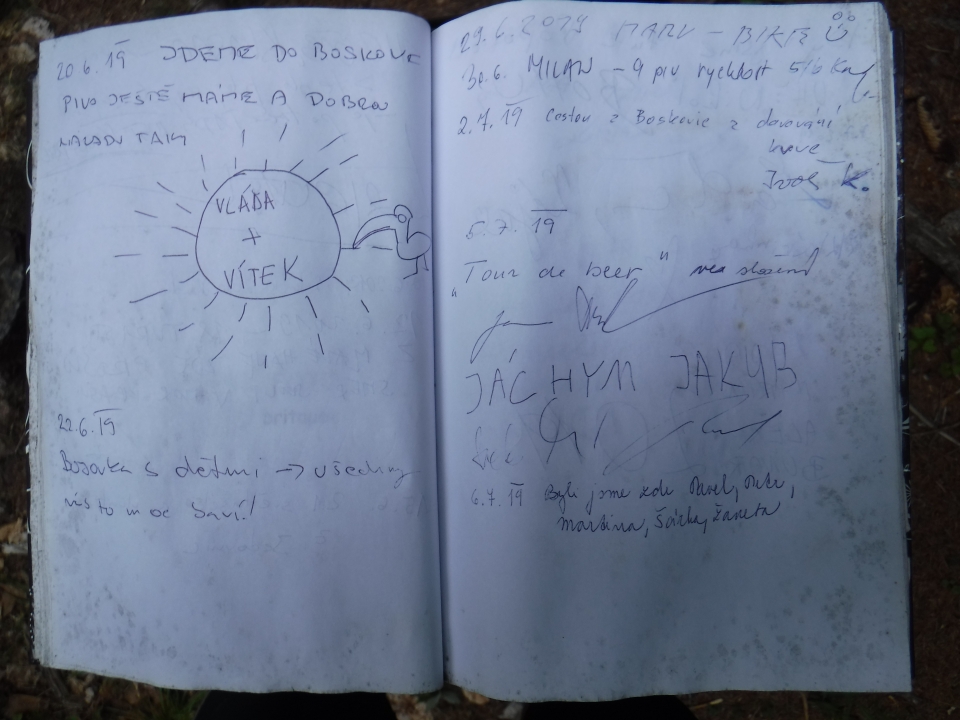 20.6.19 JDEME DO BOSKOVIC
PIVO JEŠTĚ MÁME A DOBROU
NÁLADU TAKY
VLÁDA
+
VÍTEK
22.6.19
Bojovka s dětmi → všechny
nás to moc baví!
29.6.2019 MARV - BIKE
30.6. MILAN - 9 piv rychlost
2.7.19 Cestou z Boskovic z darování
krve
K.
5.7.19
"Tour de beer"
JÁCHYM JAKUB
6.7.19 Byli jsme zde Pavel, Petr,
Martina, Šárka, Žaneta